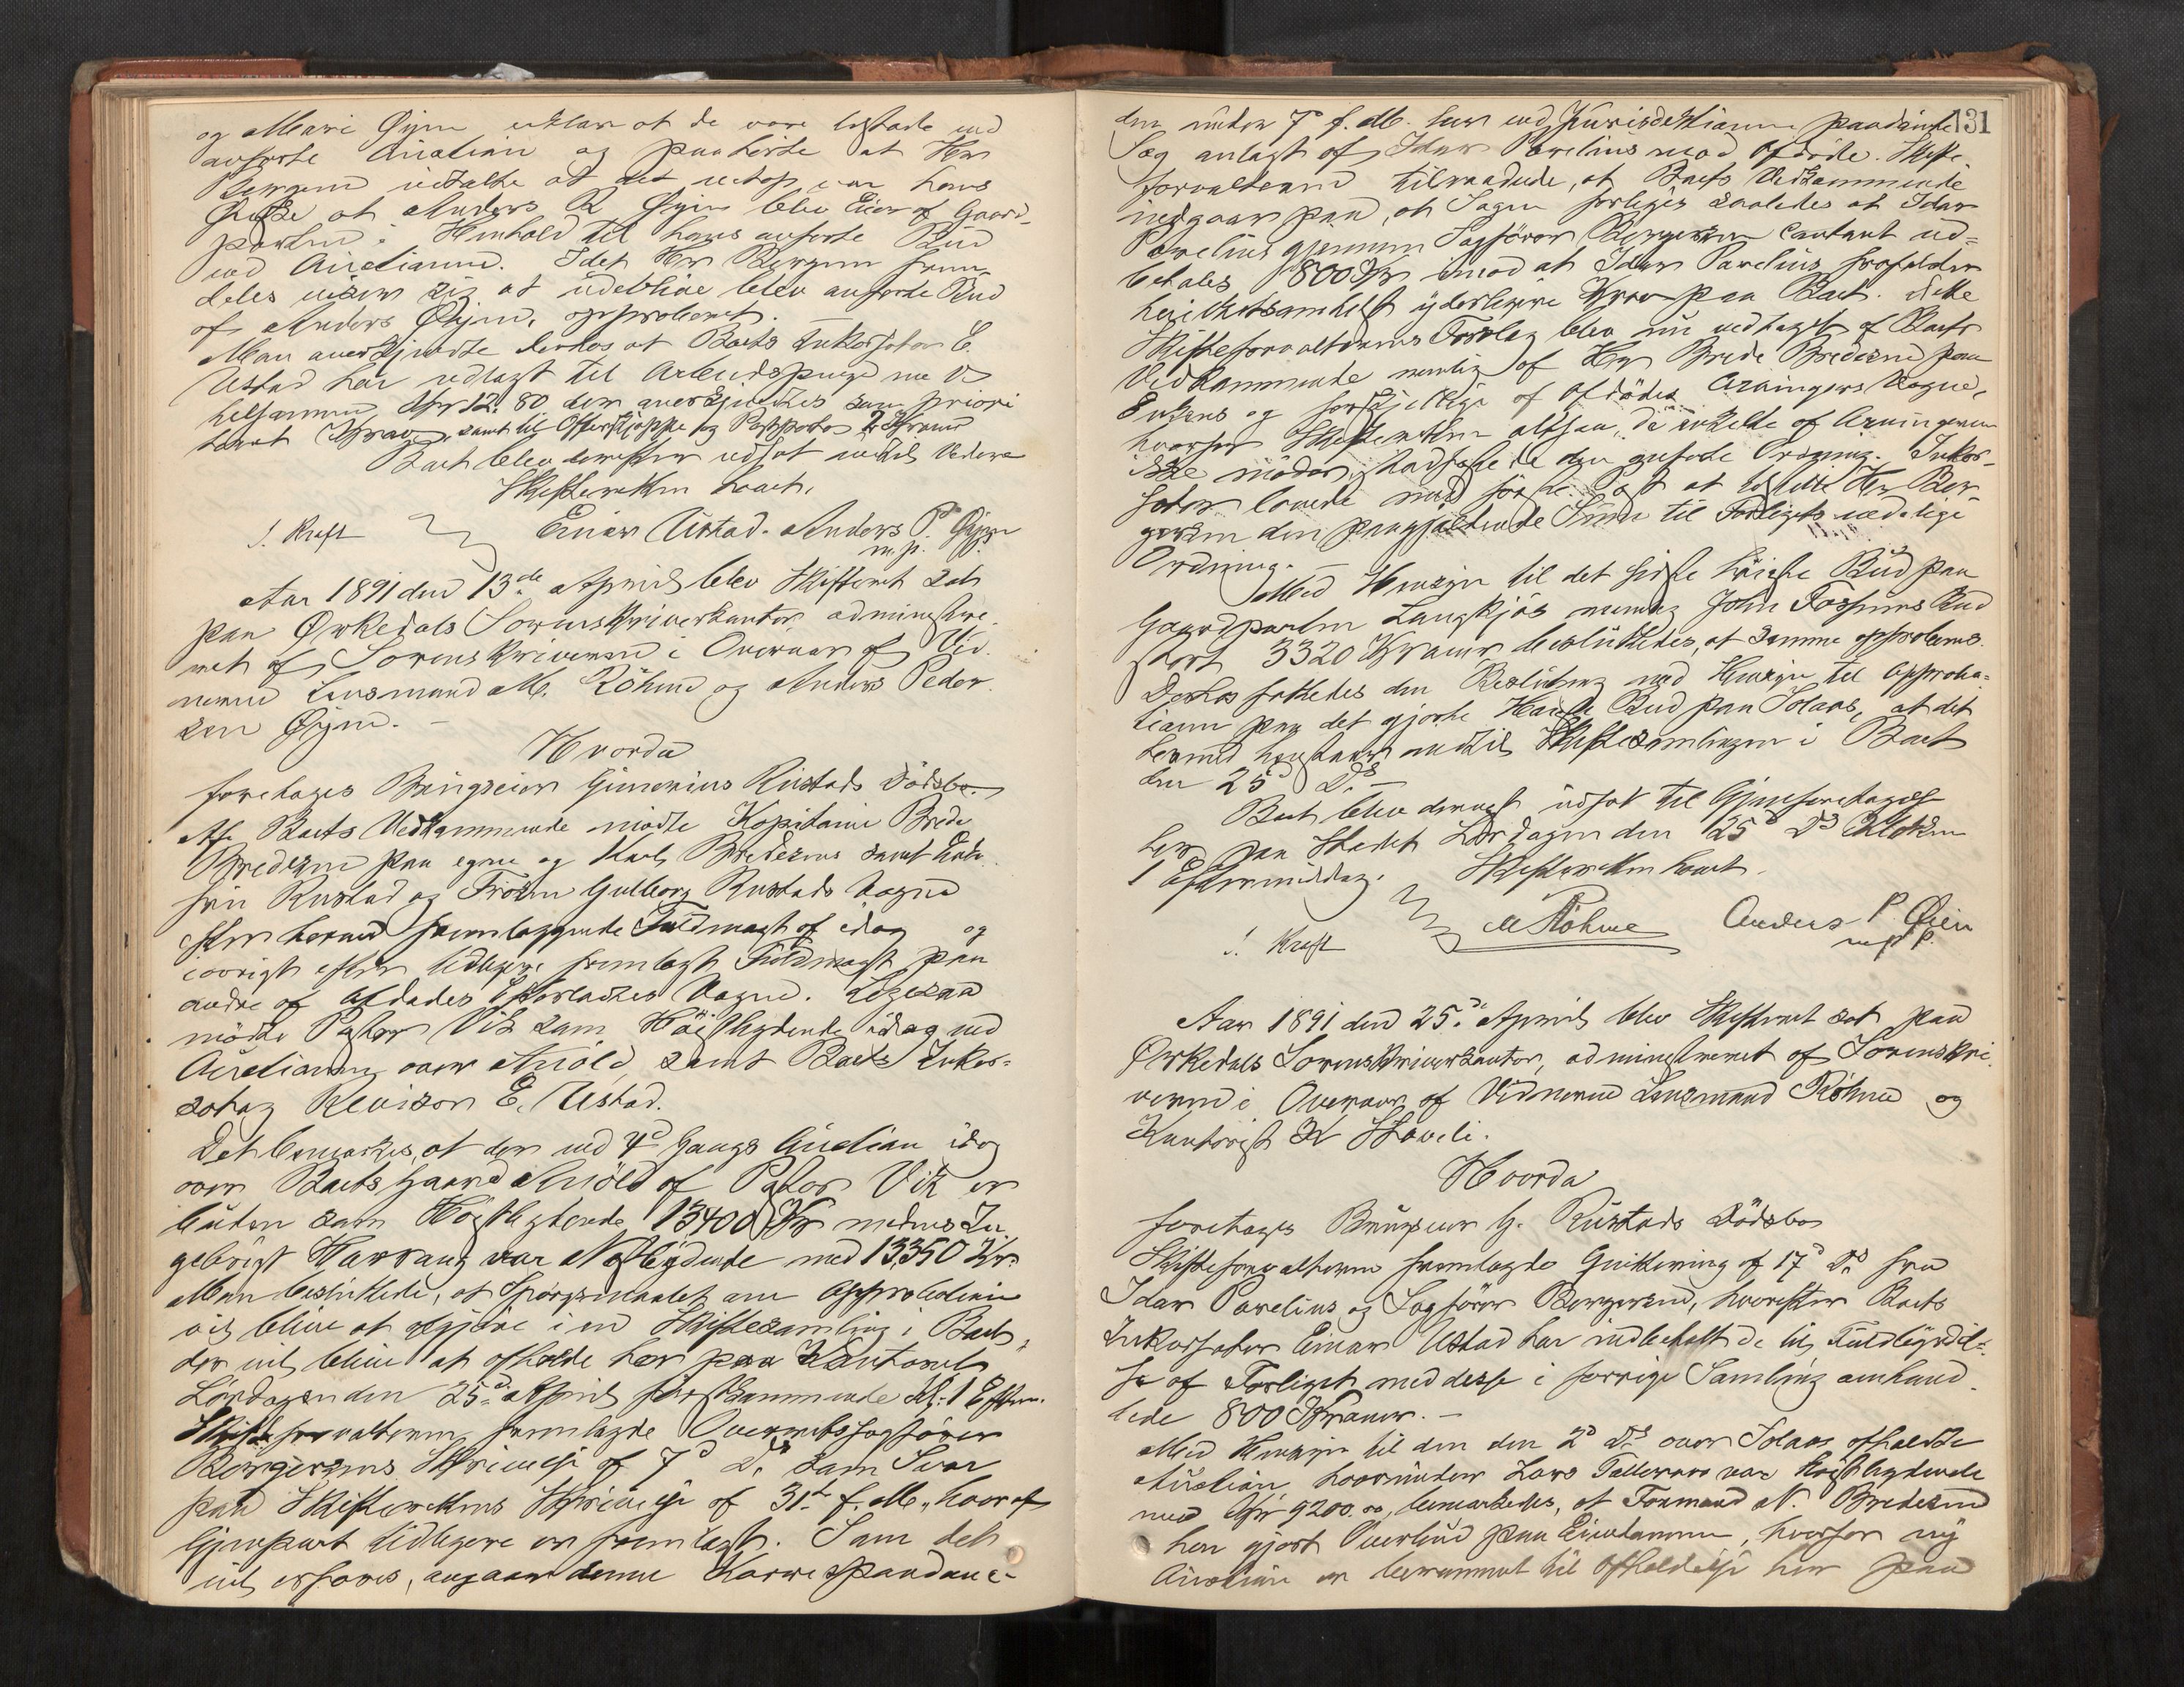 og Marie Øyen erklær at de vare tilstede ved
anførte Auction og paahørte at Hr
Bergem udtalte at det netop var hans
Ønske at Anders P. Øyen blev Eier af Gaard-
parten i Henhold til hans anførte Bud
ved Auctionen. Idet Hr Bergem frem-
deles viser sig at udeblive blev anførte Bud
af Anders Øyen, approberet.
Man anerkjendte derhos at Boets Inkassator E.
Ustad har udlagt til Arbeidspenge m. v.
tilsammen Kr 12.80 der anerkjendtes som priori
teret Krav, samt til og Postporto 2 Kroner
Boet blev derefter udsat indtil Videre
Skifteretten hævet.
J. Kraft Einar Ustad. Anders P. Øyen
m. p. P.
Aar 1891 den 13de April blev Skifteret sat
paa Ørkedals Sorenskriverkontor, administre-
ret af Sorenskriveren i Overvær af Vid-
nerne Lensmand M. Röhme og Anders Peder-
sen Øyen. —
Hvorda
foretages Brugseier Gunerius Rustads Dödsbo.
Af Boets Vedkommende mødte Kapitaine Brede
Bredesen paa egne og Karl Bredesens samt Enke-
fru Rustad og Frøken Gulborg Rustads Vegne
efter herved fremlæggende Fuldmagt af idag og
iøvrigt efter tidligere fremlagt Fuldmagt paa
andre af Afdødes Efterladtes Vegne. Ligesaa
mödte Pastor Vik som Höistbydende idag ved
Auctionen over Kniöld samt Boets Inkas-
sator Revisor E. Ustad.
Det bemærkes, at der ved 4de Gangs Auction idag
over Boets Gaard Kniöld af Pastor Vik er
buden som Höistbydende 13400 Kr medens In-
gebrigt Harvang var Næstbydende med 13350 Kr.
Man besluttede, at Spørgsmaalet om Approbation
vil blive at afgjøre i en Skiftesamling i Boet,
der vil blive at afholde her paa Kontoret
Lördagen den 25de April førstkommende Kl: 1 Efterm.
Skifteforvalteren fremlagde Overretssagfører
Bergersens Skrivelse af 7de Ds. som Svar
paa Skifterettens Skrivelse af 31te f. M., hvoraf
Gjenpart tidligere er fremlagt. Som det
vil erfares, angaar denne Korrespondance
131
den under 7de f. M. her ved Jurisdiktionen paadömte
Sag anlagt af Idar Parelius mod Afdöde. Skifte-
forvalteren tilraadede, at Boets Vedkommende
indgaar paa, at Sagen forliges saaledes at Idar
Parelius gjennem Sagförer Bergersen contant ud-
betales 800 Kr imod at Idar Parelius frafalder
hvilketsomhelst yderligere Krav paa Boet. Dette
Skifteforvalterens Forslag blev nu vedtaget af Boets
Vedkommende nemlig af Hr Brede Bredesen paa
Enkens og forskjellige af Afdödes Arvingers Vegne,
hvorfor Skifteretten altsaa, da enkelte af Arvingerne
ikke möder, stadfæstede den anførte Ordning. Inkas-
sator lovede med første Post at tilstille Hr Ber-
gersen den paagjældende Sum til Forligets endelige
Ordning. —
Med Hensyn til det sidste höieste Bud paa
Gaardparten Langkjös nemlig John Fossums Bud
stort 3320 Kroner, besluttedes, at samme approberes.
Derhos fattedes den Beslutning med Hensyn til Approba-
tionen paa det gjorte Höieste Bud paa Solaas, at det
hermed henstaar indtil Skiftesamlingen i Boet
den 25de Ds. —
Boet blev dernæst udsat til Gjenforetagelse
her paa Stedet Lördagen den 25de Ds Klokken
1 Eftermiddag. Skifteretten hævet.
J. Kraft M Röhme Anders P. Øien
m. p. P.
Aar 1891 den 25de April blev Skifteret sat paa
Ørkedals Sorenskriverkontor, administreret af Sorenskri-
veren i Overvær af Vidnerne Lensmand Röhme og
Kontorist K
Hvorda
foretages Brugseier G. Rustads Dödsbo
Skifteforvalteren fremlagde Qvittering af 17de Ds. fra
Idar Parelius og Sagförer Bergersen, hvorefter Boets
Inkassator Einar Ustad har indbetalt de til Fuldbyrdel-
se af Forliget med desse i forrige Samling omhand-
lede 800 Kroner. —
Med Hensyn til den den 2de Ds over Solaas afholdte
Auction, hvorunder Lars Tatteraas var Höistbydende
med Kr 9200.00, bemærkedes, at Formand N. Bredesen
har gjort Overbud paa Eiendommen, hvorfor ny
Auction er berammet til Afholdelse her paa